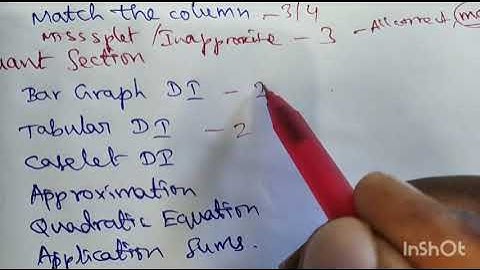 Match the column - 3/4
Misssplet / Inapproxite - 3 - All correct
uant Section
Bar Graph DI - 2
Tabular DI - 2
Caselet DI
Approximation
Quadratic Equation
Application Sums.
InShOt